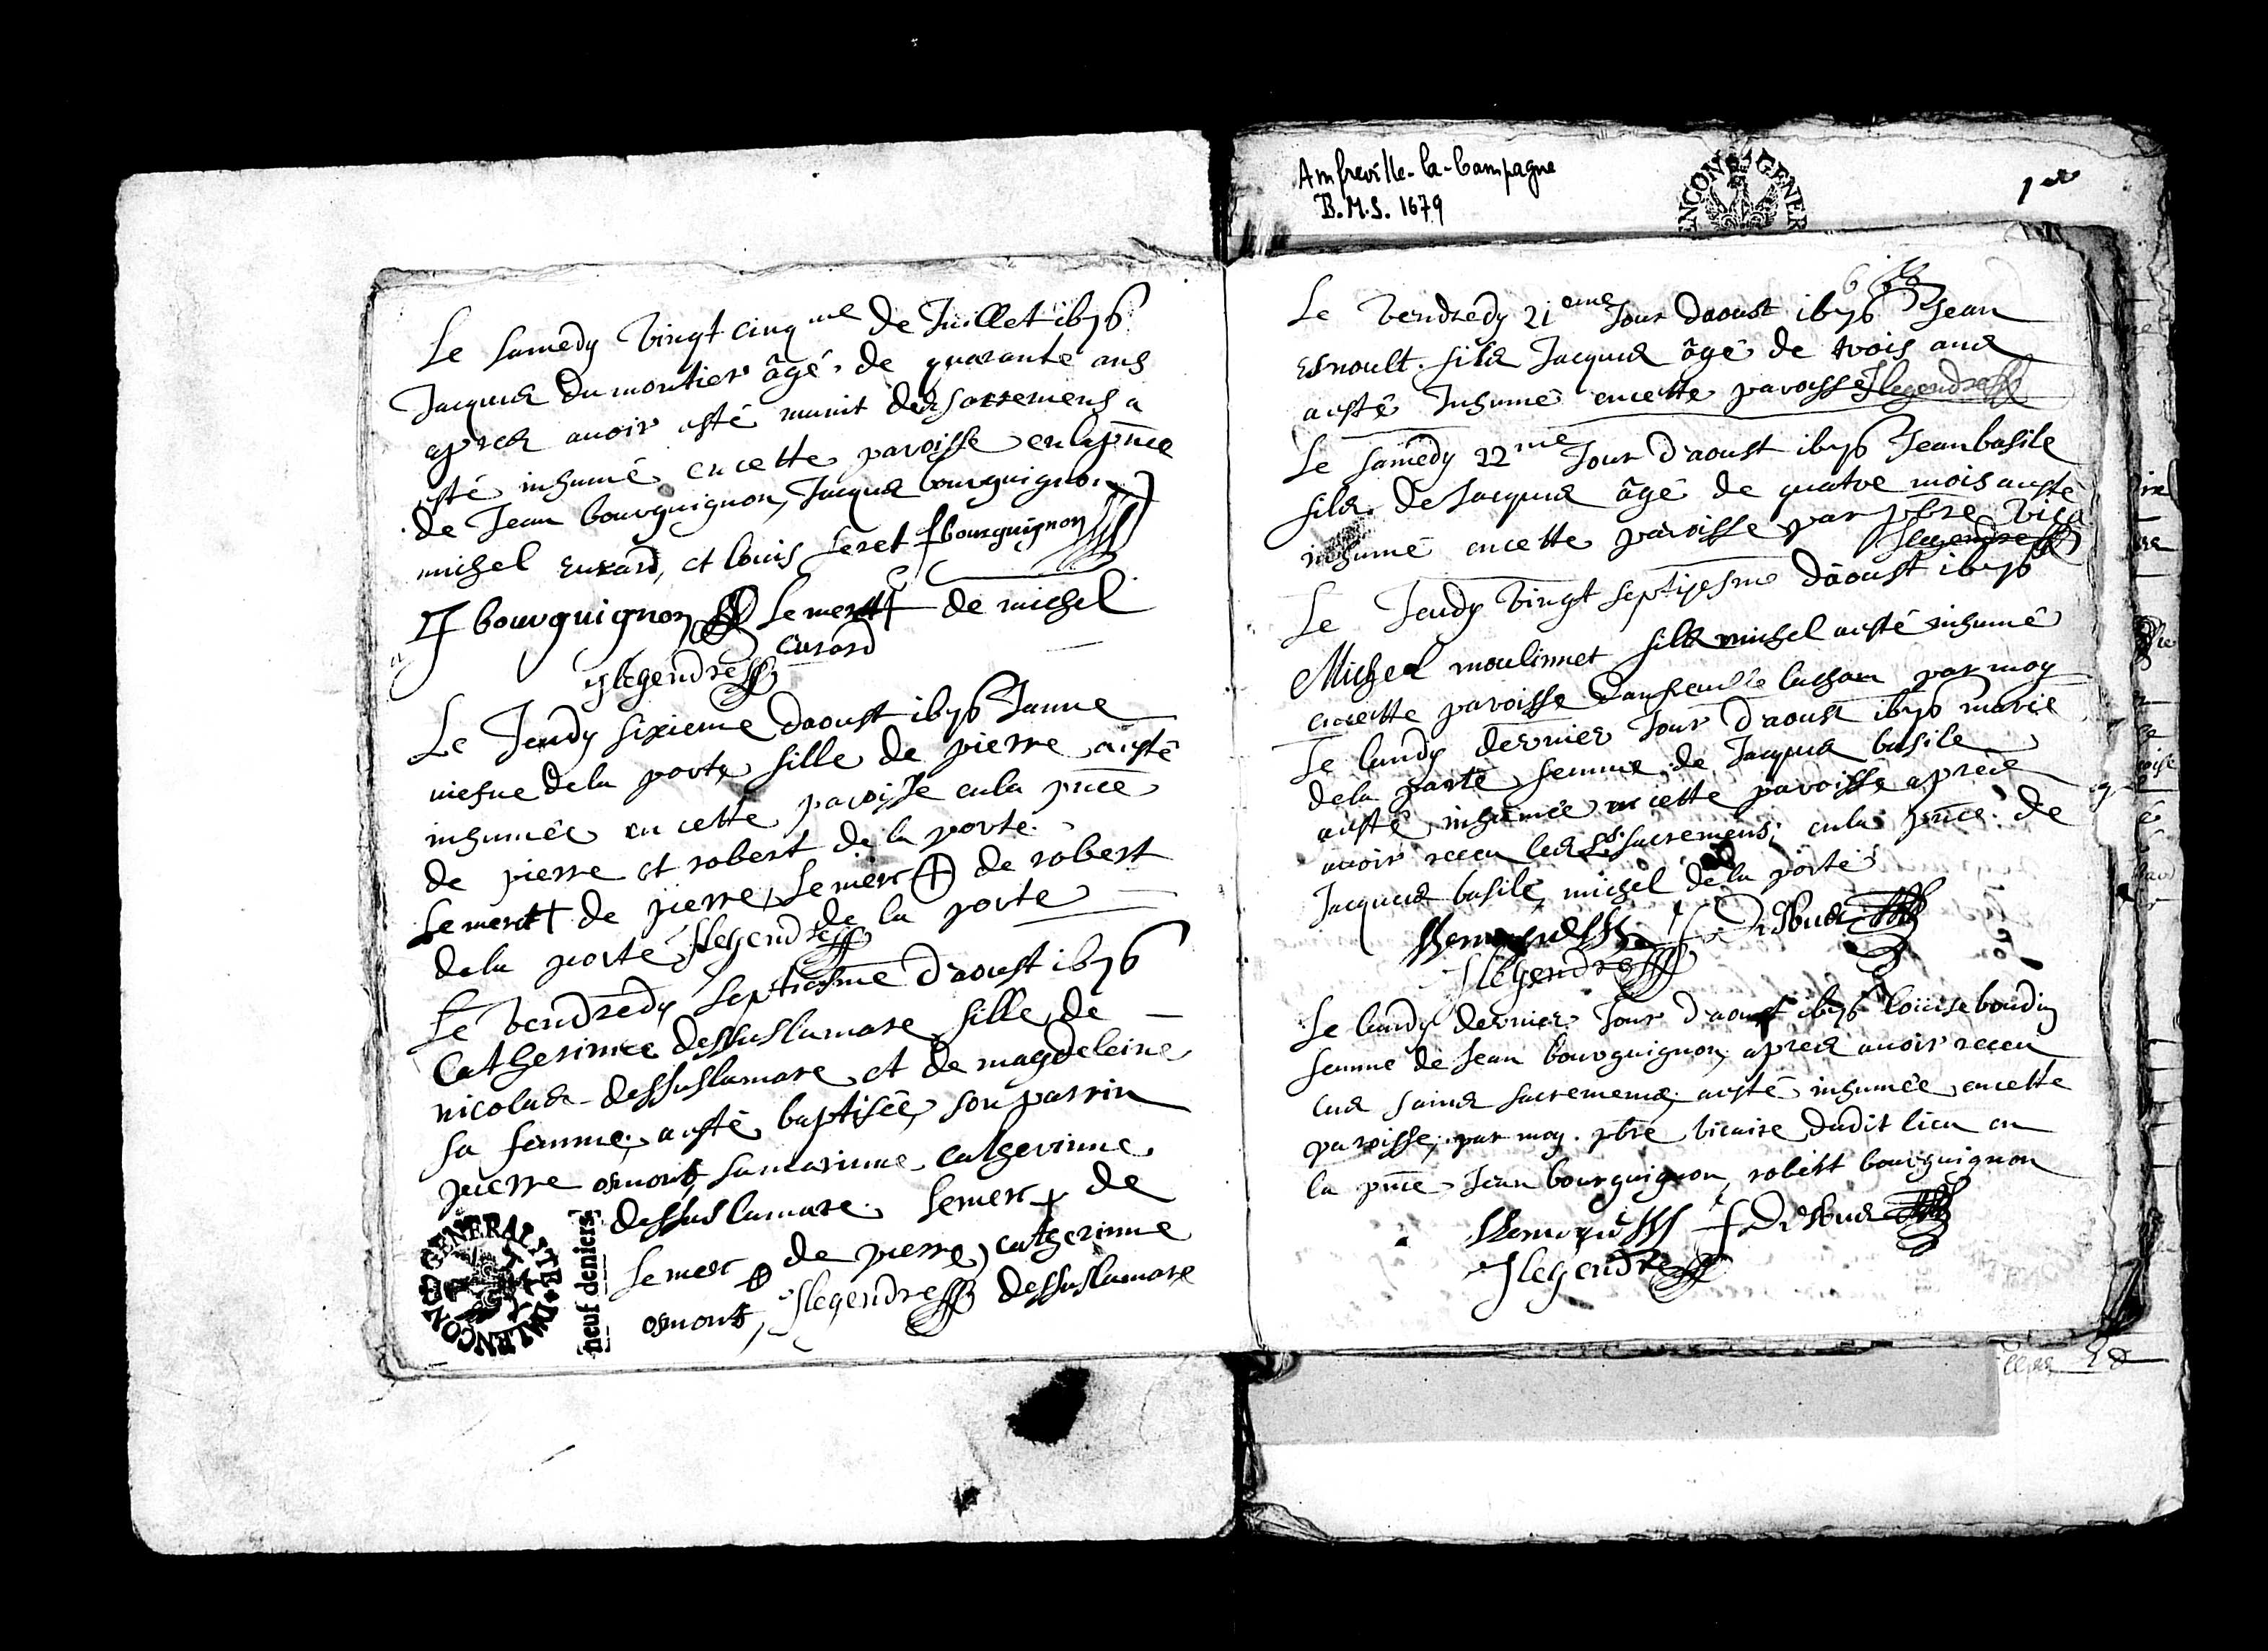 Le samedy vingt cinq me de Juillet 1676
Jacques du moutier âgé de quarante ans
apres auoir esté munit des sacremens a
esté inhumé en cette paroisse en la pnce
de Jean bourguignon, Jacques bourguignon
michel eurard, et louis feret f bourguignon
J bourguignon Le merc + de michel
eurard
J legendre
Le Jeudy sixieme daoust 1676 Janne
niesne dela porte fille de pierre a esté
inhumée en cette paroisse en la pnce
de pierre et robert de la porte
Le merc + de pierre, Le merc + de robert
dela porte J legendre de la porte
Le vendredy septiesme d'aoust 1676
Catherinne dessuslamare fille de
nicolas dessuslamare et de magdeleine
sa femme a esté baptisée, son parrin
pierre osmont, sa marinne catherinne
dessuslamare. Le merc + de
Le merc + de pierre, catherinne
osmont, J legendre dessuslamare
GENERALITE DALENCON
neuf deniers
Amfreville-la-Campagne
B.M.S. 1679
1
Le vendredy 21 eme Jour daoust 1676 Jean
esnoult fils Jacques âgé de trois ans
a esté Inhumé en cette paroisse J legendre
Le samedy 22 me Jour d'aoust 1676 Jean basile
fils de Jacques âgé de quatre mois a esté
inhumé en cette paroisse par pbre vica
J legendre
Le Jeudy vingt septiesme daoust 1676
Michel moulinnet fils michel a esté inhumé
en cette paroisse damfreuille la cham par moy
Le lundy dernier Jour d'aoust 1676 marie
dela porte femme de Jacques basile
a esté inhumée en cette paroisse apres
auoir receu les Sts sacremens, en la pnce de
Jacques basile, michel de la porte
J legendre
Le lundy dernier Jour d'aoust 1676 louise boudin
femme de Jean bourguignon, apres auoir receu
les saincts sacremens a esté inhumée en cette
paroisse, par moy pbre vicaire dudit lieu en
la pnce Jean bourguignon, robert bourguignon
J legendre